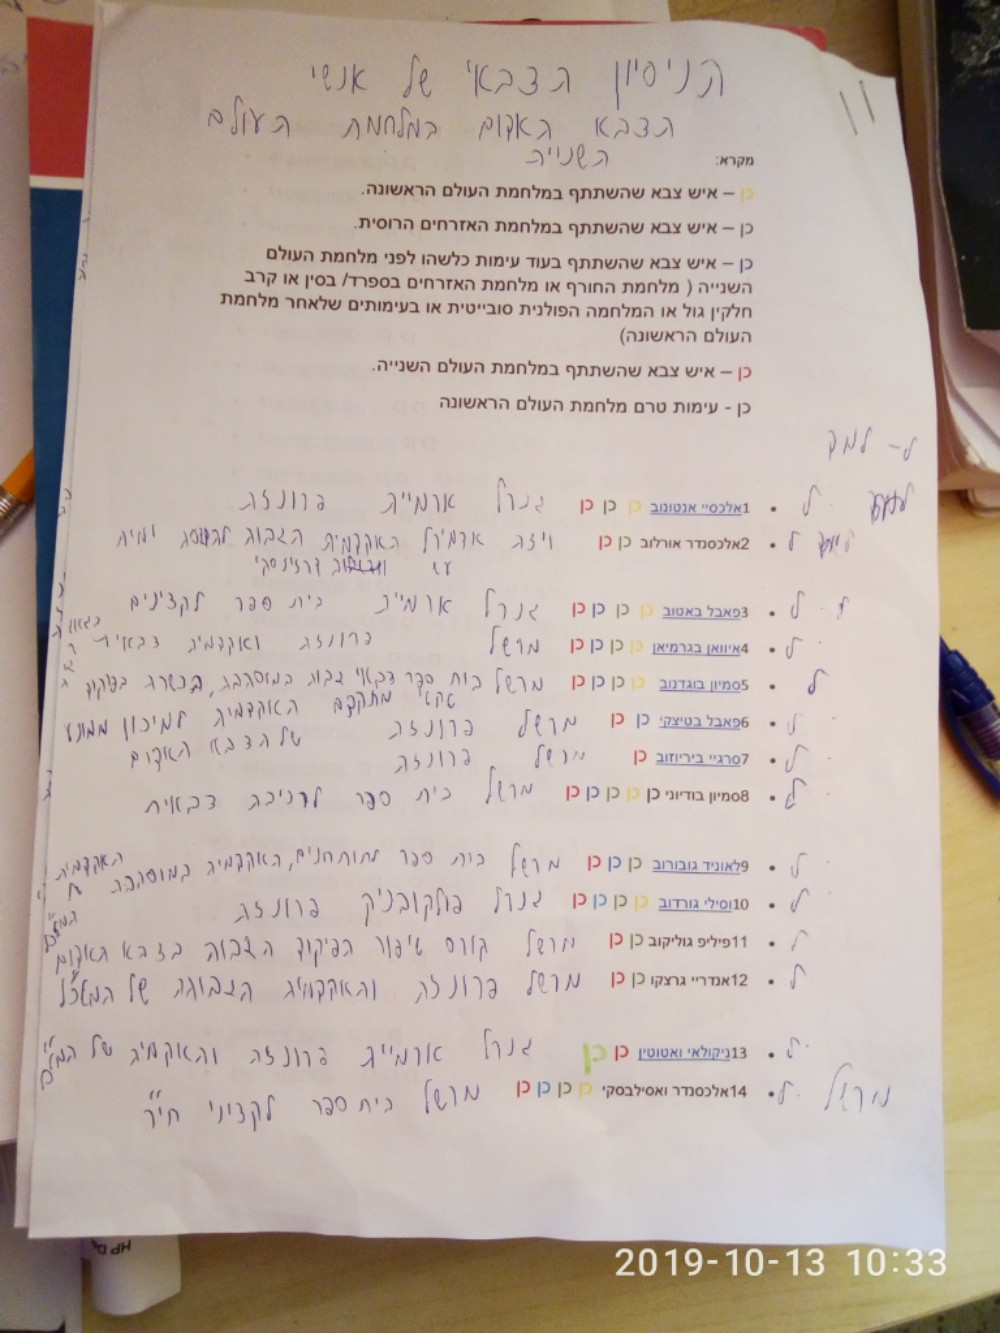 הניסיון הצבאי של אנשי
הצבא האדום במלחמת העולם
השנייה
מקרא:
כן – איש צבא שהשתתף במלחמת העולם הראשונה.
כן – איש צבא שהשתתף במלחמת האזרחים הרוסית.
כן – איש צבא שהשתתף בעוד עימות כלשהו לפני מלחמת העולם
השנייה ( מלחמת החורף או מלחמת האזרחים בספרד/ בסין או קרב
חלקין גול או המלחמה הפולנית סובייטית או בעימותים שלאחר מלחמת
העולם הראשונה)
כן – איש צבא שהשתתף במלחמת העולם השנייה.
כן - עימות טרם מלחמת העולם הראשונה
ל - למד
ל 1אלכסיי אנטונוב כן כן כן גנרל ארמייה פרונזה
ל 2אלכסנדר אורלוב כן כן אדמירל האקדמיה הגבוה
ל 3פאבל באטוב כן כן כן כן גנרל ארמייה בית ספר לקצינים
ל 4איוואן בגרמיאן כן כן כן כן מרשל פרונזה ואקדמיה צבאית
ל 5סמיון בוגדנוב כן כן כן כן מרשל בית ספר צבאי גבוה במוסקבה,
ל 6פאבל בטיצקי כן כן מרשל פרונזה האקדמיה למיכון ממונע
של הצבא האדום
ל 7סרגיי ביריוזוב כן מרשל פרונזה
ל 8סמיון בודיוני כן כן כן כן כן מרשל בית ספר לרכיבה צבאית
ל 9לאוניד גובורוב כן כן כן מרשל בית ספר לתותחנים, האקדמיה במוסקבה האקדמיה
ל 10וסילי גורדוב כן כן כן כן גנרל פולקובניק פרונזה
ל 11פיליפ גוליקוב כן כן מרשל קורס שיפור הפיקוד הגבוה בצבא האדום
ל 12אנדריי גרצקו כן כן מרשל פרונזה והאקדמיה הגבוהה של המטכ"ל
ל 13ניקולאי ואטוטין כן כן גנרל ארמייה פרונזה והאקדמיה של המטכ"ל
מרשל ל 14אלכסנדר ואסילבסקי כן כן כן כן מרשל בית ספר לקציני חי"ר
HP
2019-10-13 10:33